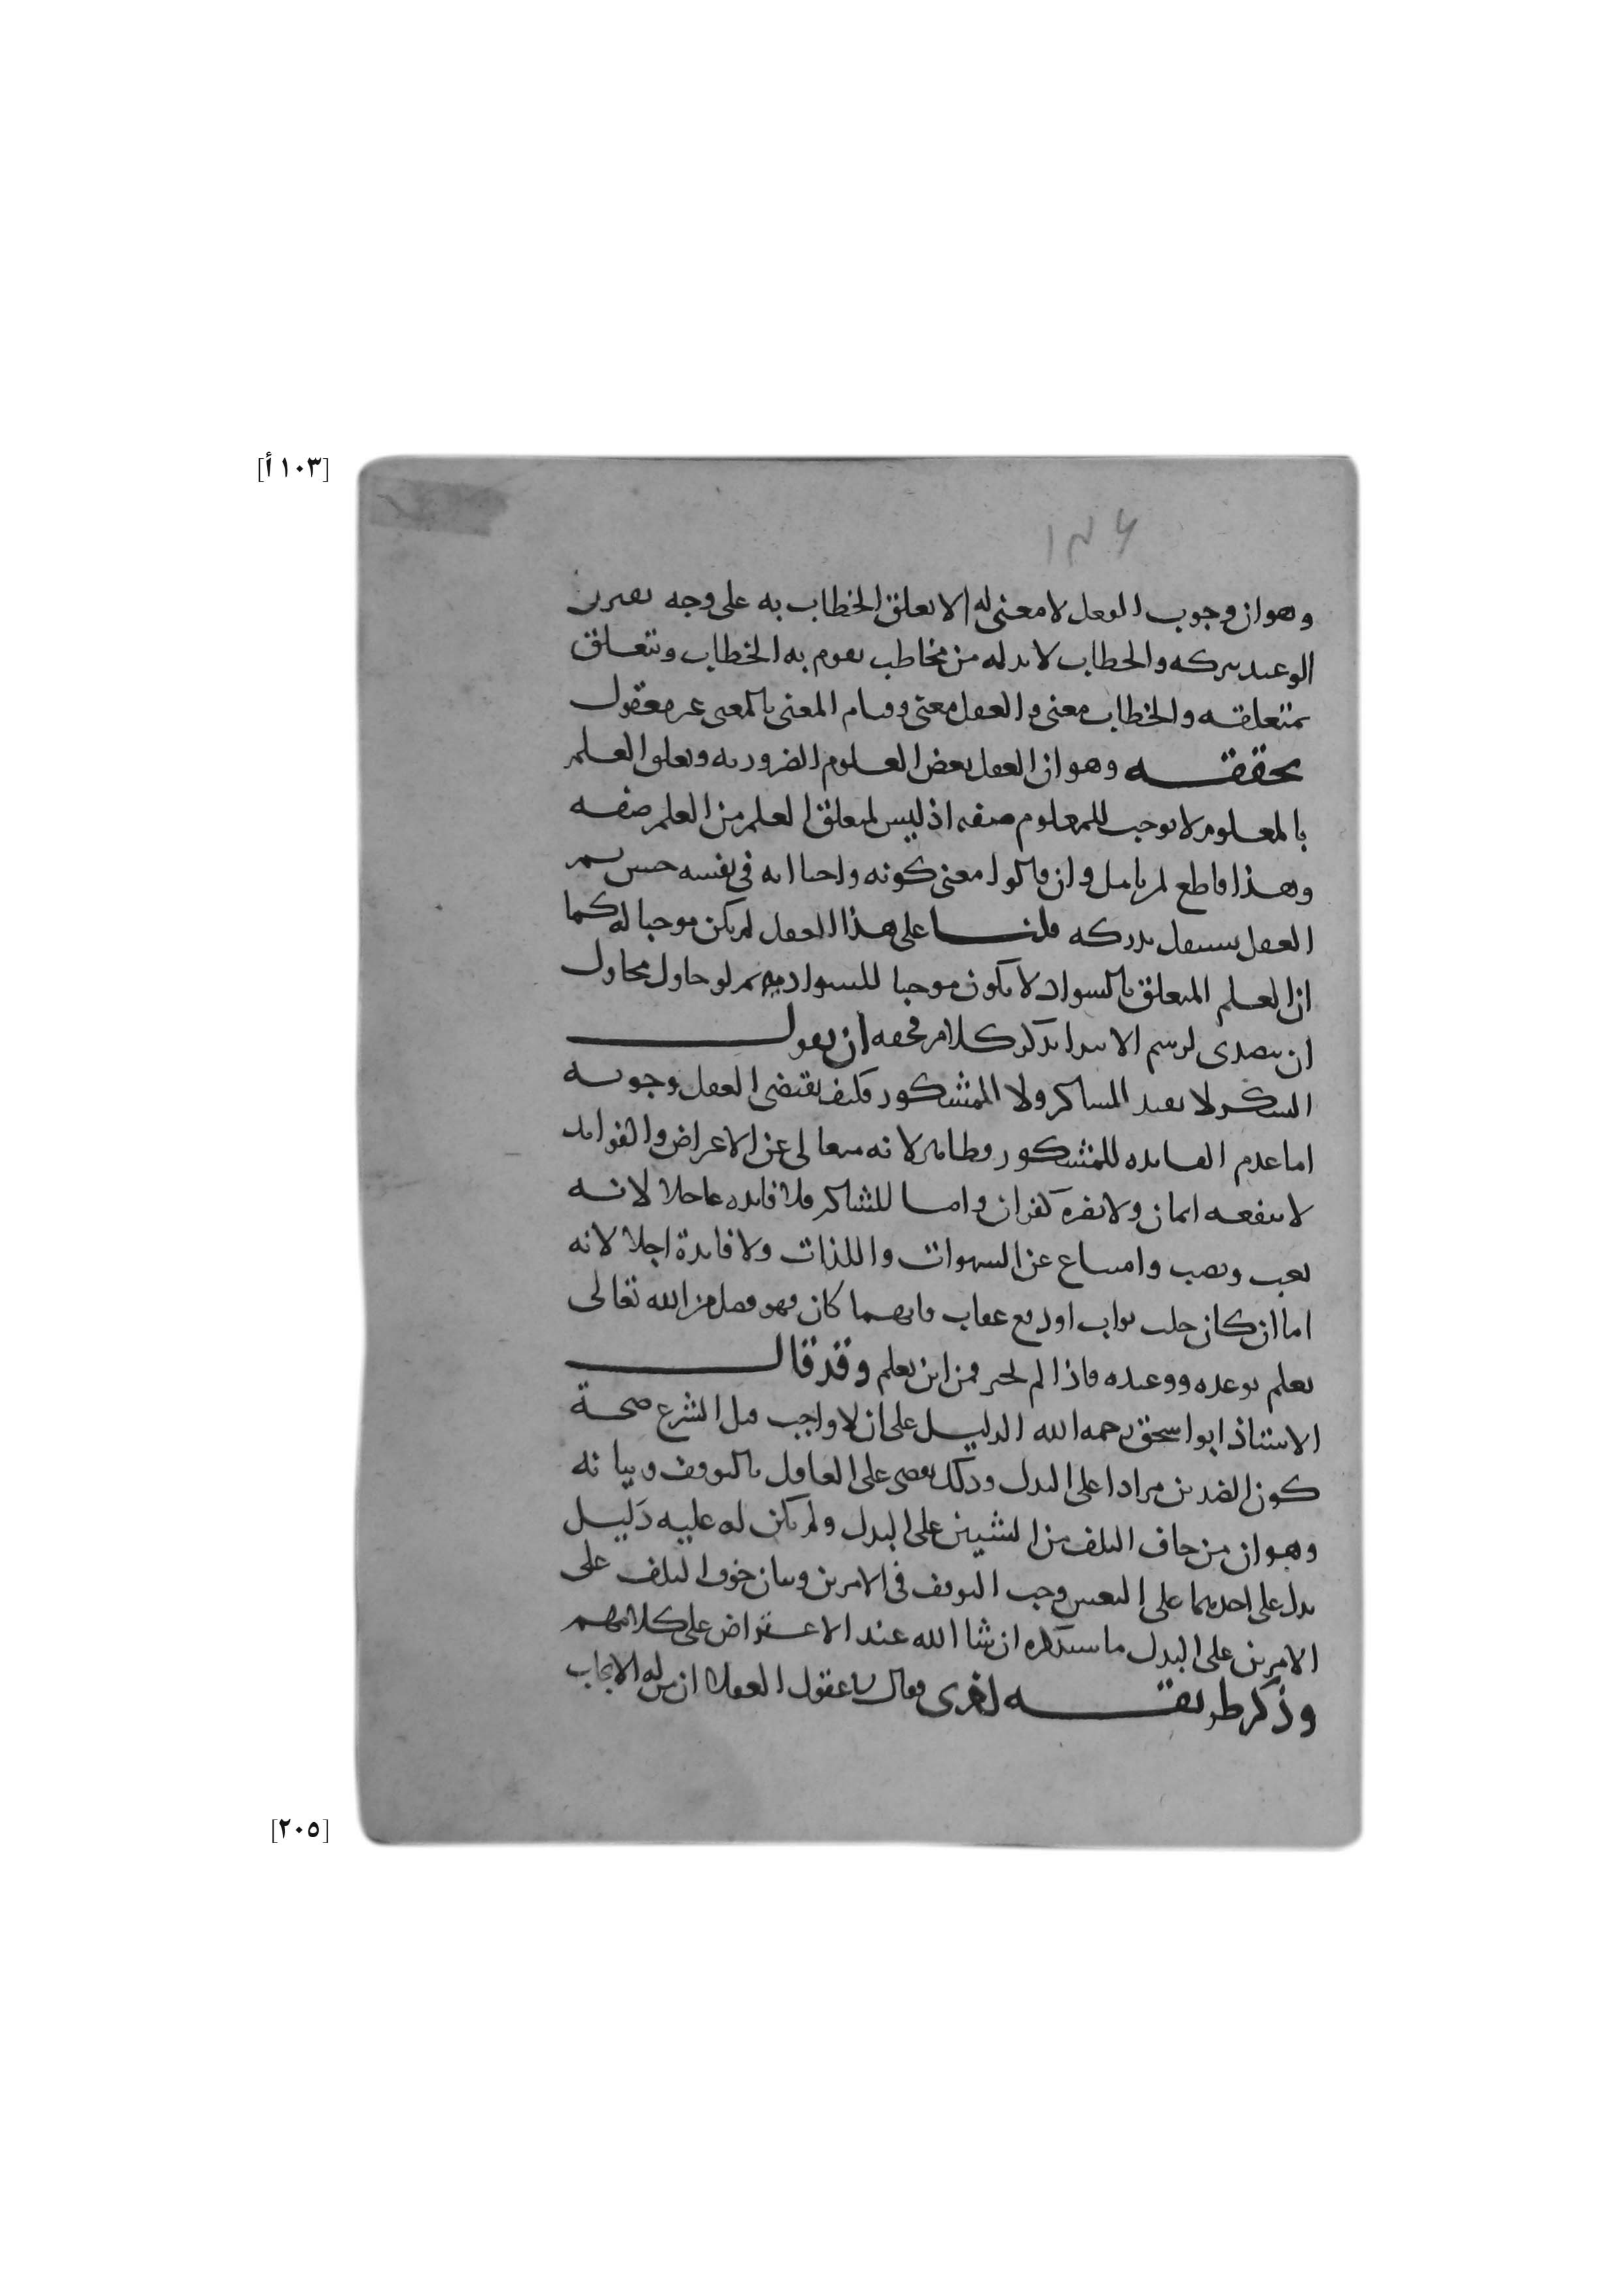 [١٠٣ أ]
١٢٦
وهو ان وجوب الفعل لا معنى له الا تعلق الخطاب به على وجه يقترن
الوعيد بتركه والخطاب لا بد له من مخاطب يقوم به الخطاب وتتعلق
بمتعلقه والخطاب معنى والعقل معنى وقيام المعنى بالمعنى غير معقول
تحققه وهو ان العقل بعض العلوم الضرورية وتعلق العلم
بالمعلوم لا يوجب للمعلوم صفة اذ ليس لمتعلق العلم من العلم صفه
وهذا قاطع لمن تامل وان قالوا معنى كونه واجبا انه في نفسه حسن
العقل يستقل بدركه قلنا على هذا العقل لم يكن موجبا له كما
ان العلم المتعلق بالسواد لا يكون موجبا للسواد ثم لو حاول محاول
ان يتصدى لرسم الابتدا بذكر كلام فحقه ان يقول
الشكر لا يفيد الشاكر ولا المشكور فكيف يقتضى العقل وجوبه
اما عدم الفائده للمشكور فظاهر لانه متعالى عن الاعراض والفوايد
لا ينفعه ايمان ولا يضره كفران واما للشاكر فلا فايده عاجلا لانه
تعب ونصب وامتناع عن الشهوات واللذات ولا فايدة اجلا لانه
اما ان كان جلب ثواب او دفع عقاب فايهما كان فهو فضل من الله تعالى
يعلم بوعده ووعيده فاذا لم يخبر فمن اين يعلم وقد قال
الاستاذ ابو اسحق رحمه الله الدليل على ان لا واجب قبل الشرع صحة
كون الضدين مرادا على البدل وذلك يقضى على العاقل بالتوقف وبيانه
وهو ان من خاف التلف من الشيين على البدل ولم يكن له عليه دليل
يدل على احدهما على التعيين وجب التوقف في الامرين وبيان خوف التلف على
الامرين على البدل ما سنذكره ان شا الله عند الاعتراض على كلامهم
وذكر طريقه اخرى فقال عقول العقلا ان من له الايجاب
[٢٠٥]